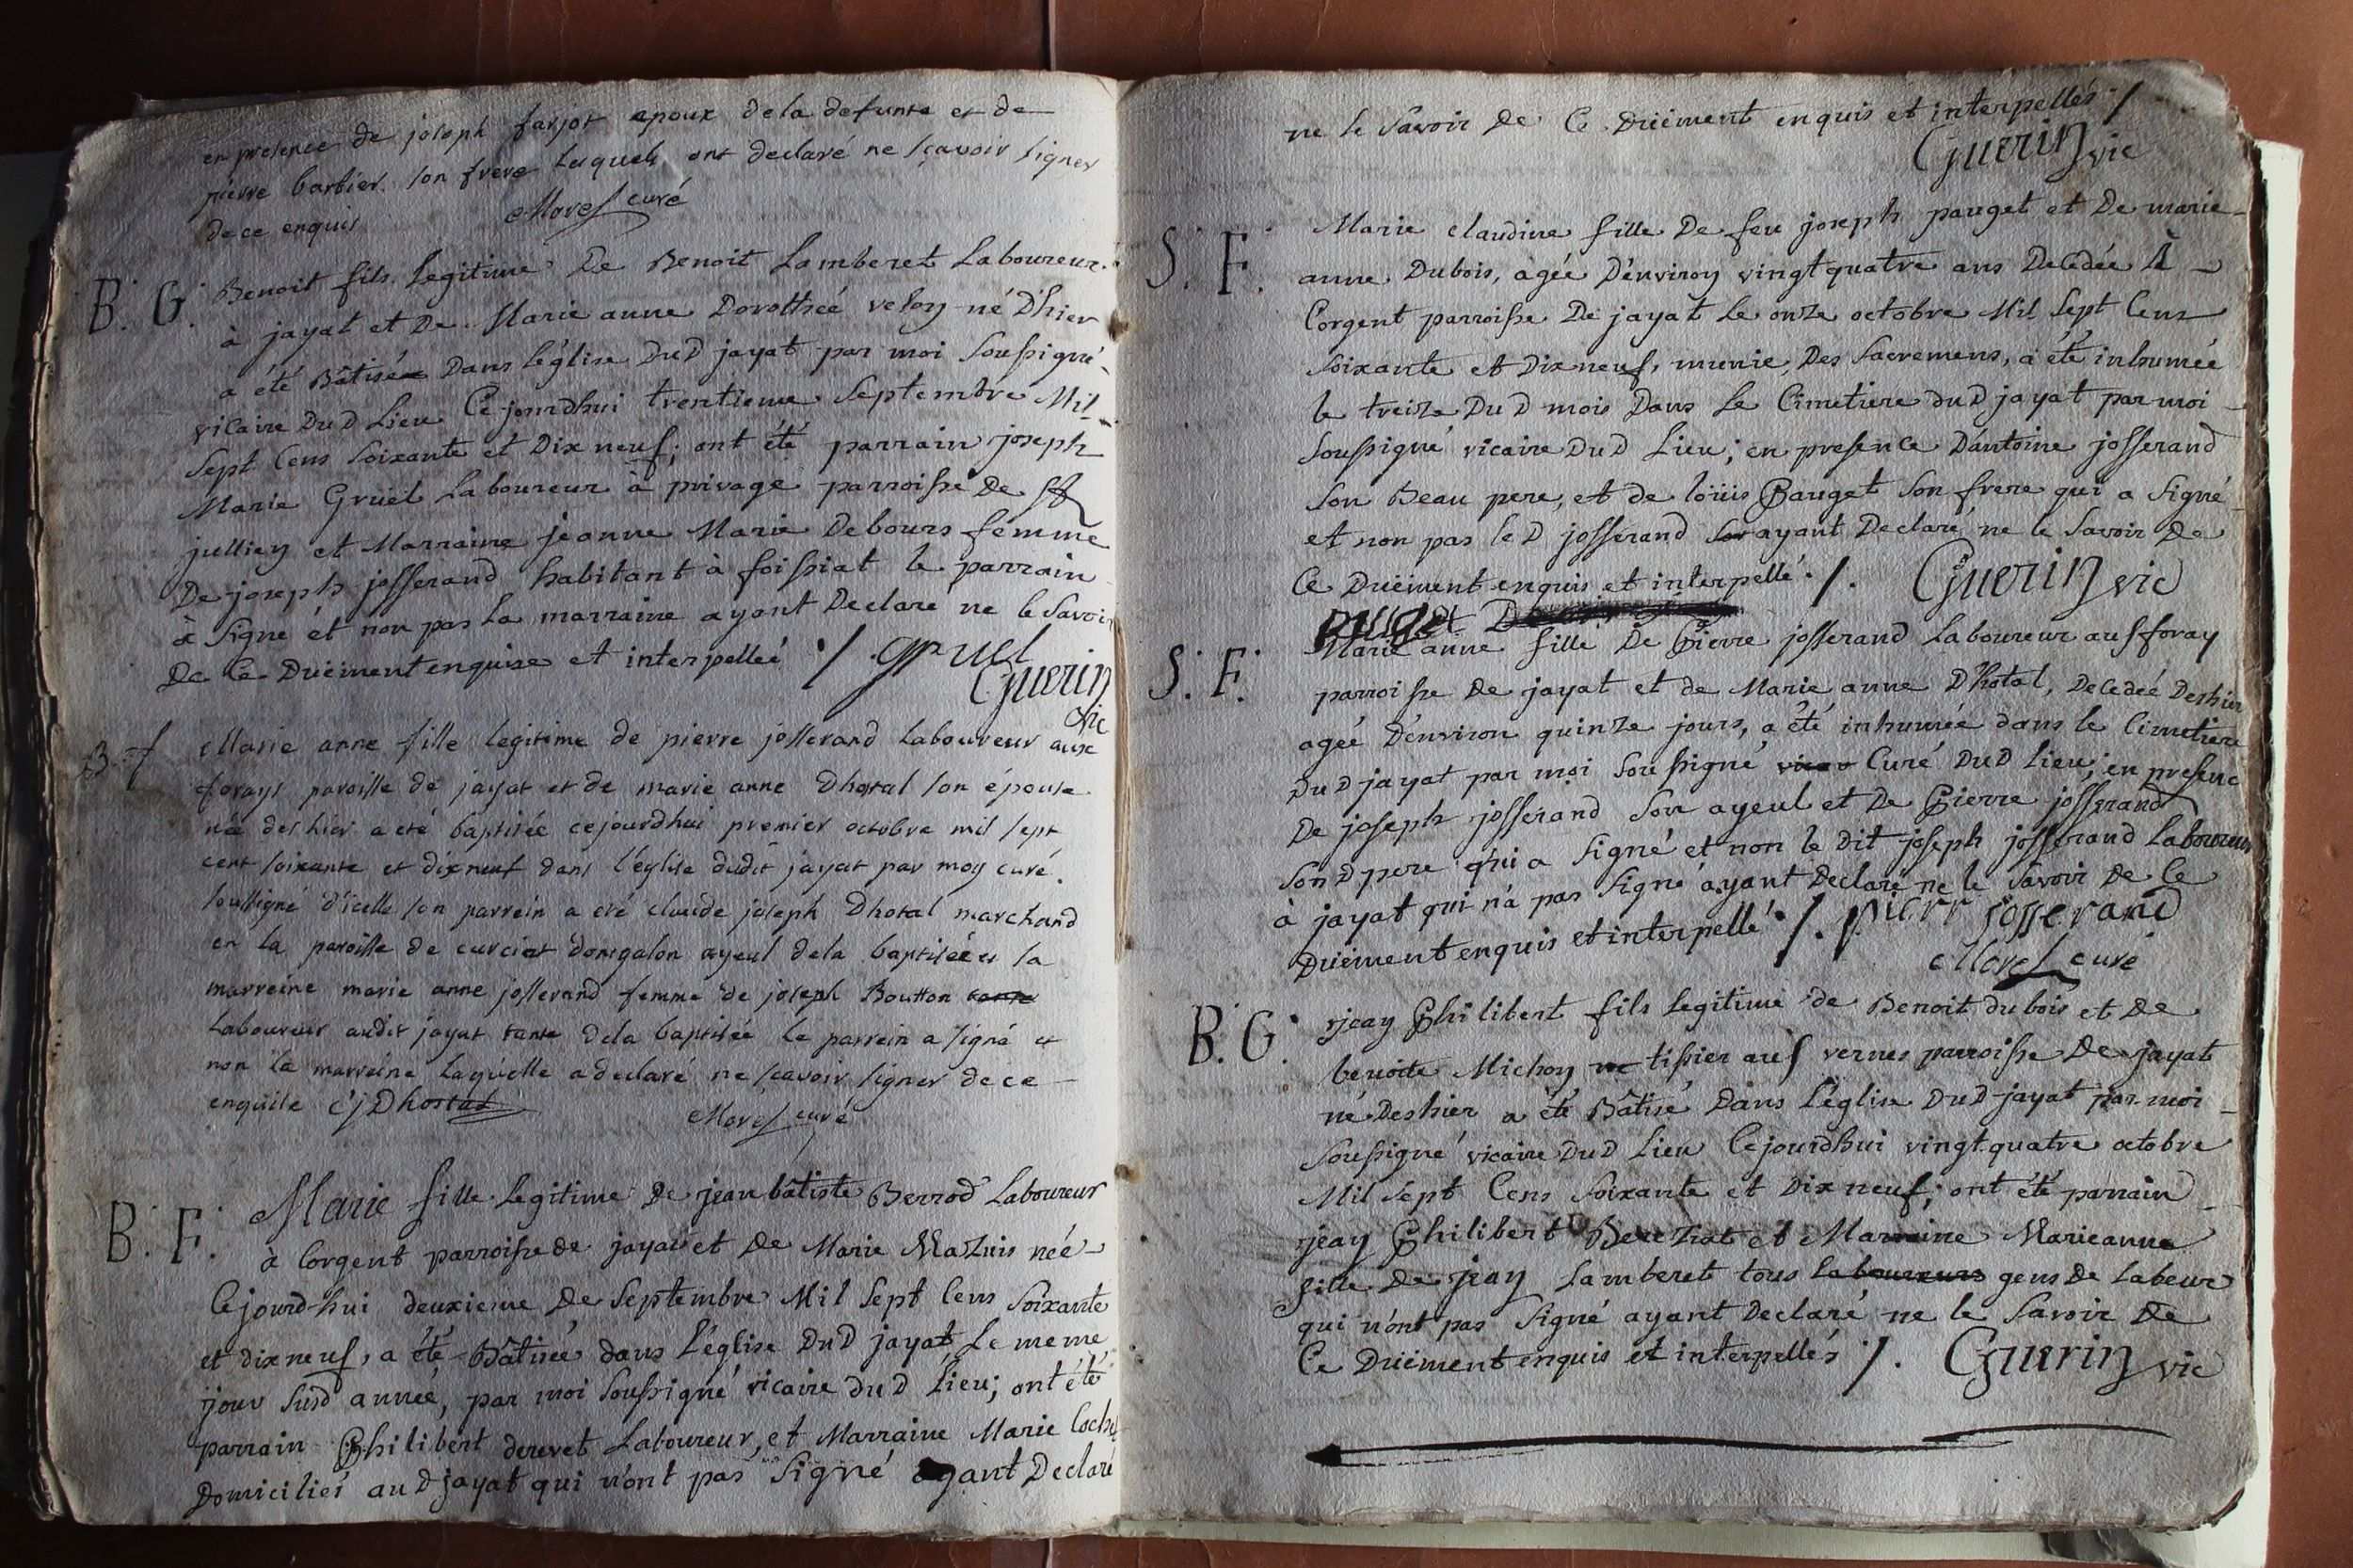 en presence de joseph farjot epoux de la defunte et de
pierre barbier son frere lesquels ont declaré ne sçavoir signer
de ce enquis Morel curé
B. G. Benoit fils legitime De Benoit Lamberet Laboureur
à jayat et De Marie anne Dorothée veloy né D'hier
a été Bâtisé Dans l'église DuD jayat par moi Soussigné
vicaire DuD Lieu Ce jourdhui trentieme Septembre Mil
Sept Cens Soixante et Dix neuf; ont été parrain joseph
Marie Grüel Laboureur à privage parroisse De St
jullien et Marraine jeanne Marie Debours femme
De joseph josserand habitant à foissiat le parrain
à Signé et non pas La marraine ayant Declaré ne le Savoir
De Ce Düement enquise et interpellée ./. gruel
Guerin
vic
B. f Marie anne fille legitime de pierre josserand laboureur aux
forays paroisse de jayat et de marie anne Dhotal son épouse
née des hier a eté baptisée cejourdhui premier octobre mil sept
cent soixante et dix neuf dans l'église dudit jayat par moy curé
soussigné d'icelle son parrein a eté claude joseph Dhotal marchand
en la paroisse de curciat dongalon ayeul de la baptisée et sa
marreine marie anne josserand femme de joseph Boutton
Laboureur audit jayat tante de la baptisée le parrein a signé et
non la marreine laquelle a declaré ne sçavoir signer de ce
enquise cj Dhostal Morel curé
B. F. Marie fille legitime De jean bâtiste Berrod Laboureur
à Corgent parroisse de jayat et De Marie Mazuis née
Cejourd-hui deuxieme De Septembre Mil Sept Cens Soixante
et dix neuf, a été Bâtisée dans L'église DuD jayat Le meme
jour SusD année, par moi Soussigné vicaire du D Lieu; ont été
parrain Philibert derevet Laboureur, et Marraine Marie Coche
Domiciliés auD jayat qui n'ont pas Signé ayant Declaré
ne le Savoir De Ce Düement enquis et interpellés ./
Guerin vic
S. F. Marie claudine fille De feu joseph pauget et De marie
anne Dubois, agée D'environ vingt quatre ans Decedée À
Corgent parroisse De jayat Le onze octobre Mil Sept Cens
Soixante et Dix neuf, munie Des Sacremens, a été inhumée
le treize Du D mois Dans Le Cimetiere du D jayat par moi
Soussigné vicaire Du D Lieu; en presence D'antoine josserand
Son Beau pere, et de loüis Pauget Son frere qui a Signé
et non pas le D josserand ayant Declaré ne le Savoir De
Ce Düement enquis et interpellé ./. Guerin vic
puget
S. F. Marie anne fille De Pierre josserand Laboureur aus foray
parroisse De jayat et de Marie anne D'hotal, Decedée Des hier
agée D'environ quinze jours, a été inhumée dans le Cimetiere
Du D jayat par moi Soussigné Curé DuD Lieu; en presence
De joseph josserand Son ayeul et De Pierre josserand
Son D pere qui a Signé et non le Dit joseph josserand Laboureur
à jayat qui n'a pas Signé ayant Declaré ne le Savoir De Ce
Düement enquis et interpellé ./. pierr josserand
Morel curé
B. G. jean Philibert fils Legitime de Benoit dubois et De
benoite Michon tissier aus vernes parroisse De jayat
né Deshier a été Bâtisé Dans L'église DuD jayat par moi
Soussigné vicaire DuD Lieu Cejourdhui vingt quatre octobre
Mil Sept Cens Soixante et Dix neuf; ont été parrain
jean Philibert et Marraine Marieanne
fille De jean Lamberet tous laboureurs gens De Labeur
qui n'ont pas Signé ayant Declaré ne le Savoir De
Ce Düement enquis et interpellés ./. Guerin vic